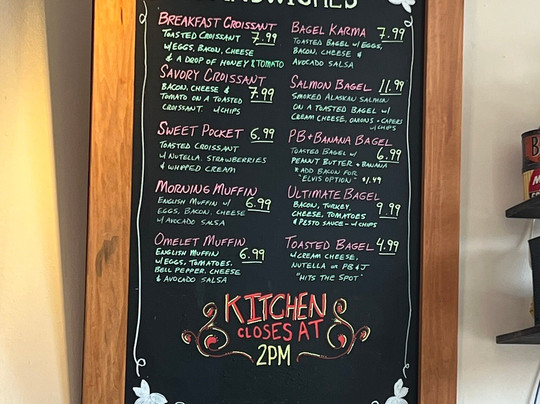 SANDWICHES
BREAKFAST CROISSANT
TOASTED CROISSANT 7.99
W/EGGS, BACON, CHEESE
& A DROP OF HONEY & TOMATO
SAVORY CROISSANT
BACON, CHEESE & 7.99
TOMATO ON A TOASTED
CROISSANT W/CHIPS
SWEET POCKET 6.99
TOASTED CROISSANT
W/NUTELLA, STRAWBERRIES
& WHIPPED CREAM
MORNING MUFFIN
ENGLISH MUFFIN W/ 6.99
EGGS, BACON, CHEESE
W/AVOCADO SALSA
OMELET MUFFIN
ENGLISH MUFFIN 6.99
W/EGGS, TOMATOES,
BELL PEPPER, CHEESE
& AVOCADO SALSA
BAGEL KARMA 7.99
TOASTED BAGEL W/EGGS,
BACON, CHEESE &
AVOCADO SALSA
SALMON BAGEL 11.99
SMOKED ALASKAN SALMON
ON A TOASTED BAGEL W/
CREAM CHEESE, ONIONS & CAPERS
W/CHIPS
PB+BANANA BAGEL
TOASTED BAGEL W/ 6.99
PEANUT BUTTER & BANANA
* ADD BACON FOR
"ELVIS OPTION" $1.49
ULTIMATE BAGEL
BACON, TURKEY, 9.99
CHEESE, TOMATOES
& PESTO SAUCE - W/CHIPS
TOASTED BAGEL 4.99
W/CREAM CHEESE,
NUTELLA OR PB&J
"HITS THE SPOT"
KITCHEN
CLOSES AT
2PM